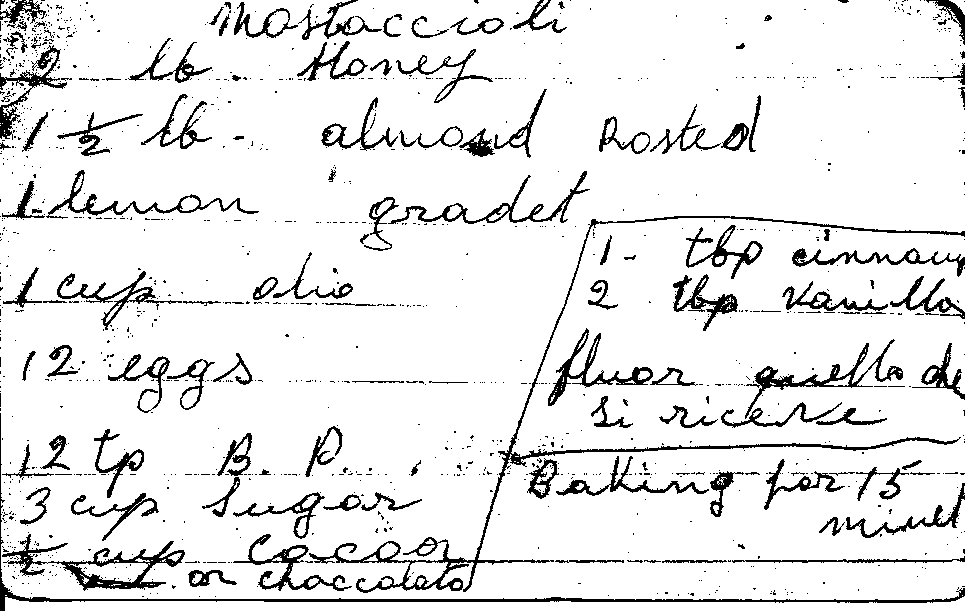 Mostaccioli
2 lb. Honey
1 1/2 lb - almond Rosted
1 - lemon gradet
1 cup olio
12 eggs
12 tp B. P.
3 cup Sugar
1/2 cup Cocoa
or choccolato
1 - tbp cinnam
2 tbp Vanilla
fluor quello che
si riceve
Baking for 15
minut